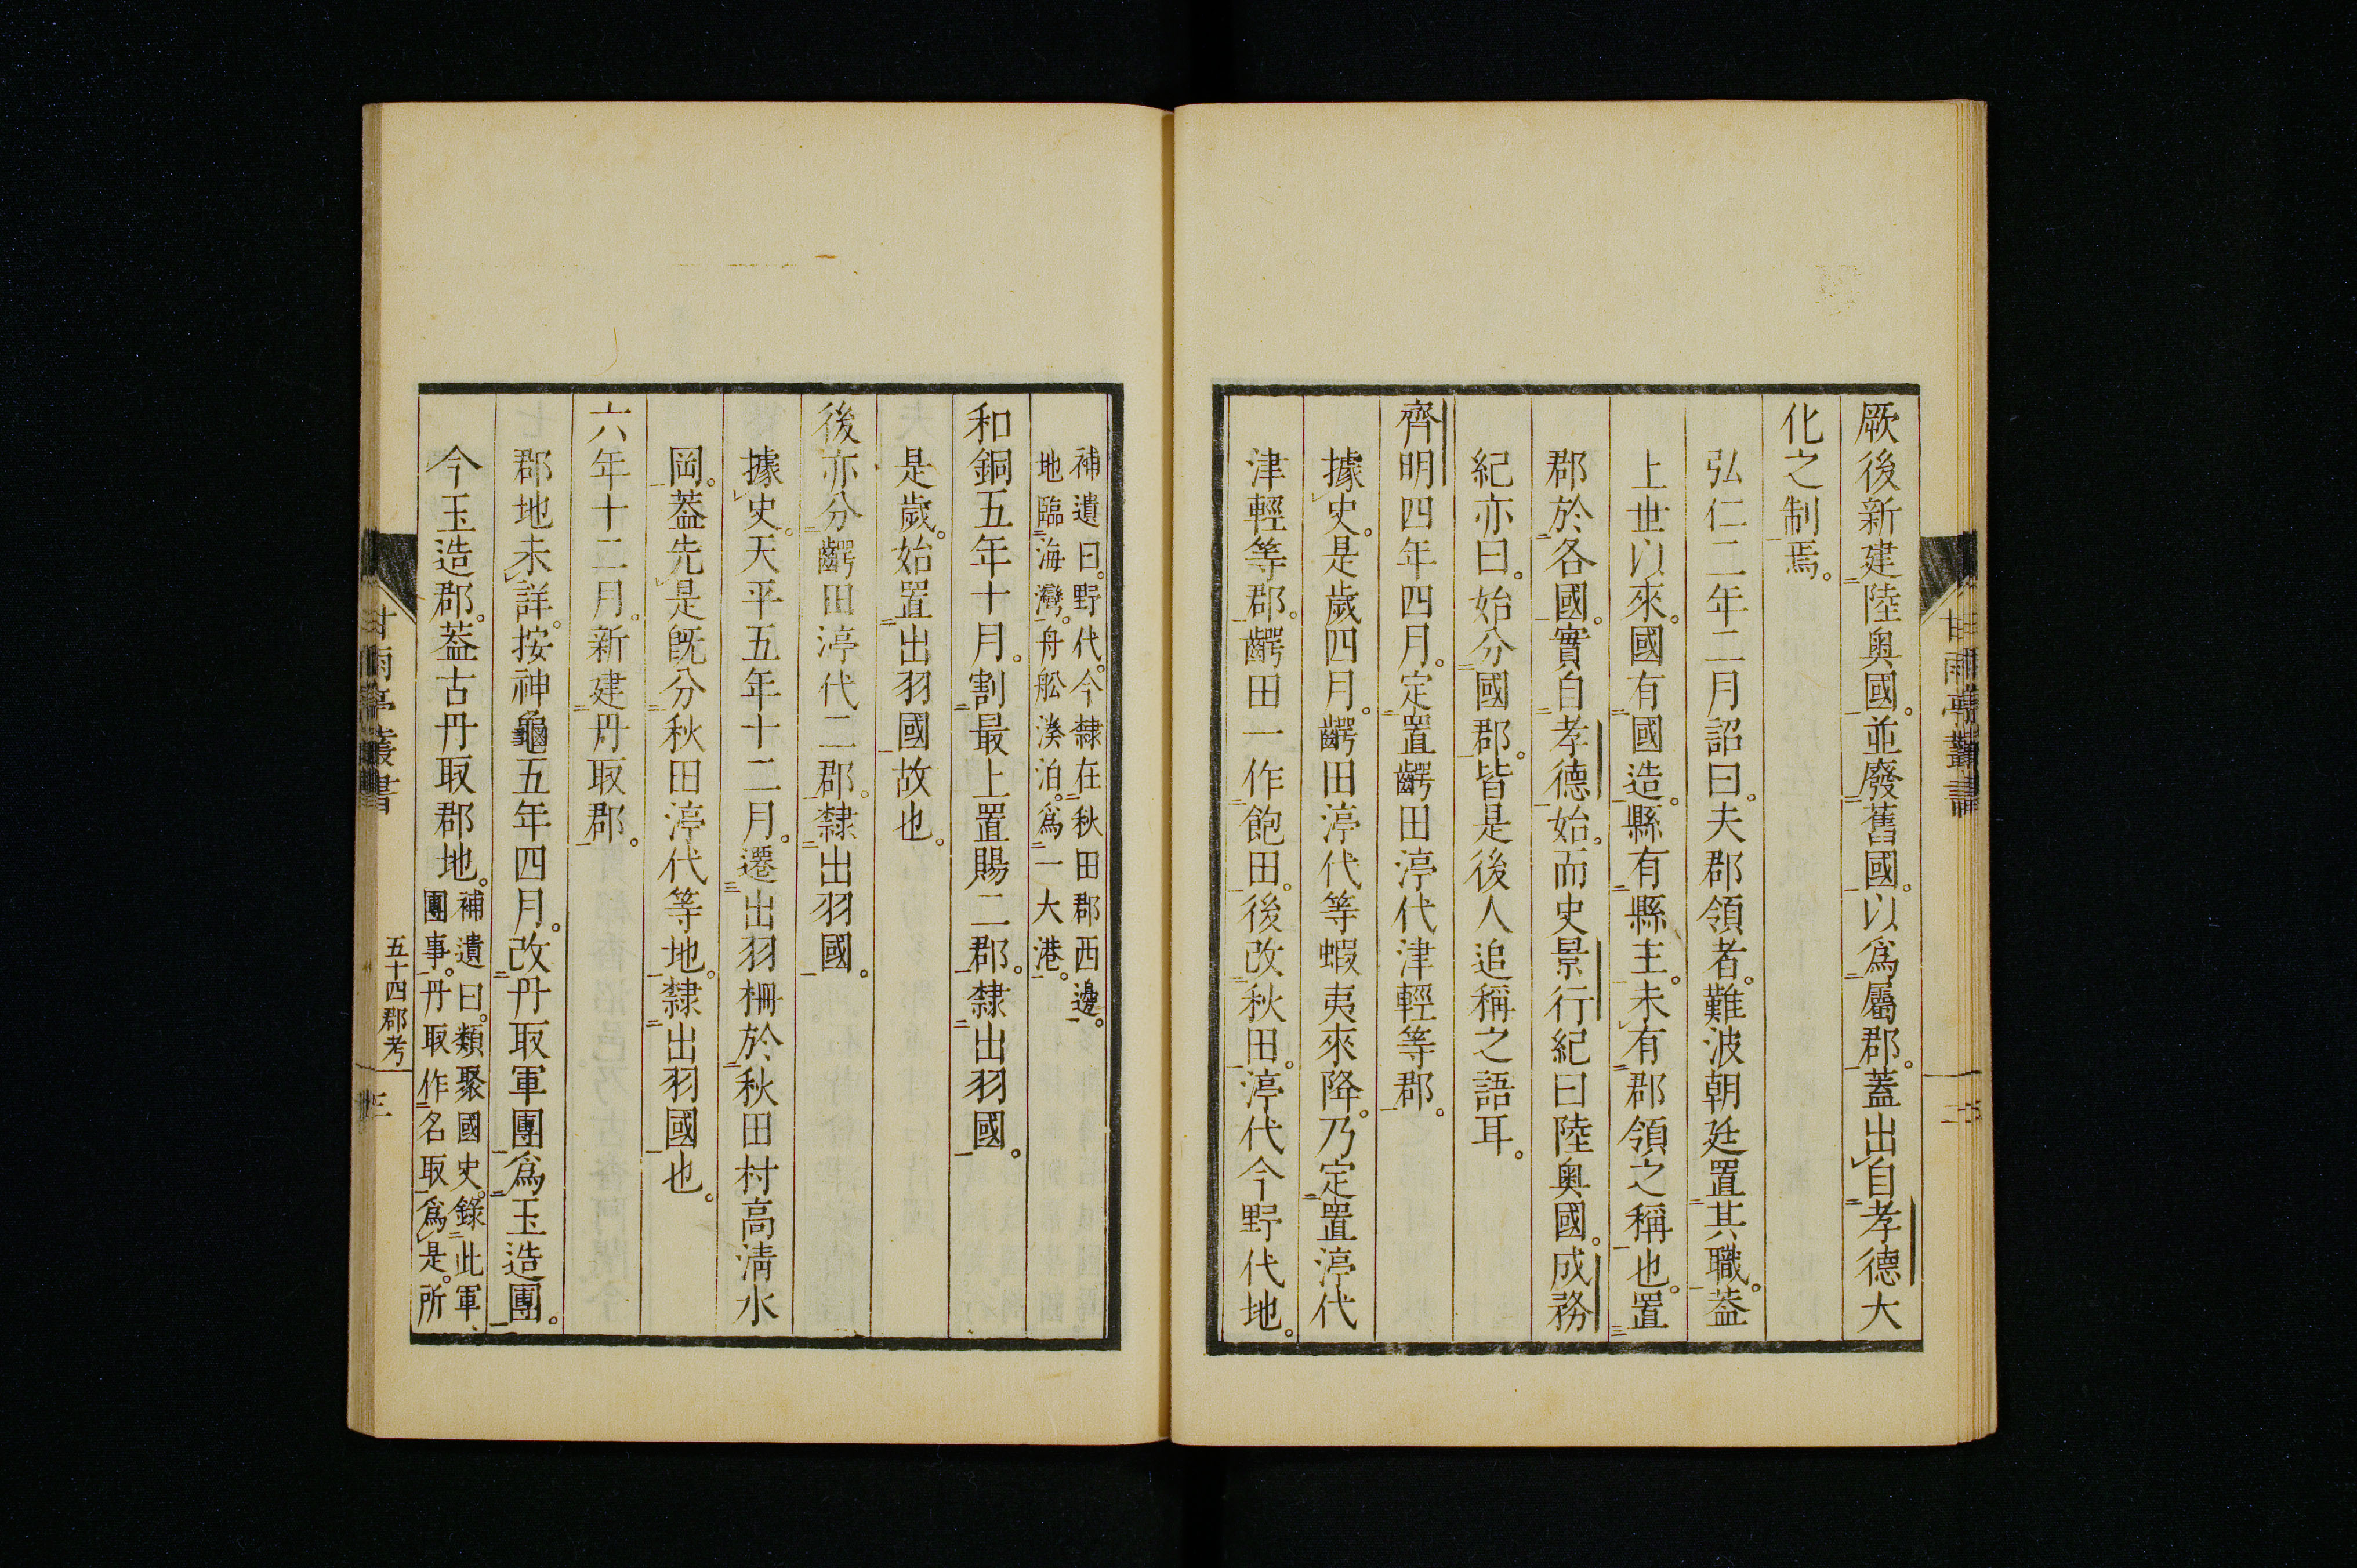 厥後新建陸奥國。並廢舊國。以爲屬郡。蓋出自孝德大
化之制焉。
弘仁二年二月詔曰。夫郡領者。難波朝廷置其職。蓋
上世以來。國有國造。縣有縣主。未有郡領之稱也。置
郡於各國。實自孝德始。而史景行紀曰陸奥國。成務
紀亦曰。始分國郡。皆是後人追稱之語耳。
齊明四年四月。定置齶田渟代津輕等郡。
據史。是歲四月。齶田渟代等蝦夷來降。乃定置渟代
津輕等郡。齶田一作飽田。後改秋田。渟代今野代地。
補遺曰。野代。今隸在秋田郡西邊。
地臨海灣。舟舩湊泊。爲一大港。
和銅五年十月。割最上置賜二郡。隸出羽國。
是歲。始置出羽國故也。
後亦分齶田渟代二郡。隸出羽國。
據史。天平五年十二月。遷出羽柵於秋田村高清水
岡。蓋先是既分秋田渟代等地。隸出羽國也。
六年十二月。新建丹取郡。
郡地未詳。按神龜五年四月。改丹取軍團爲玉造團。
今玉造郡。蓋古丹取郡地。
補遺曰。類聚國史。錄此軍
團事。丹取作名取爲是。所
甘雨亭叢書
五十四郡考
三
甘雨亭叢書